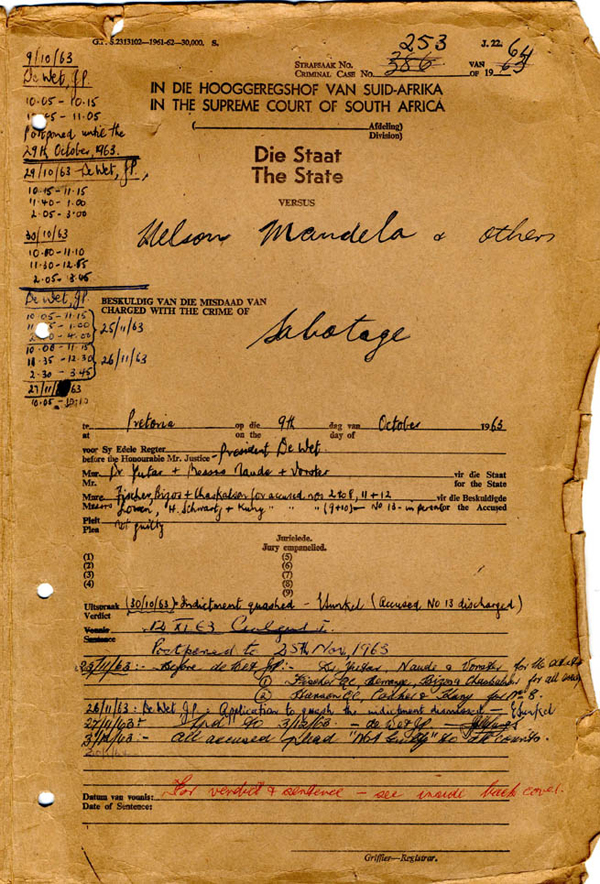 G.P. S.2313102—1961-62—30,000. S.
J. 22.
253
STRAFSAAK No.
CRIMINAL CASE No. 386
VAN
OF 19 63
64
IN DIE HOOGGEREGSHOF VAN SUID-AFRIKA
IN THE SUPREME COURT OF SOUTH AFRICA
( Afdeling)
Division)
Die Staat
The State
VERSUS
Nelson Mandela & others
BESKULDIG VAN DIE MISDAAD VAN
CHARGED WITH THE CRIME OF
Sabotage
9/10/63
De Wet, J.P.
10.05 - 10.15
- 11.05
Postponed until the
29th October, 1963.
29/10/63 De Wet, J.P.,
10.15 - 11.15
11.40 - 1.00
2.05 - 3.00
30/10/63
10.00 - 11.10
11.30 - 12.55
2.05 -
De Wet, J.P.
10.05 - 11.15
- 1.00
2.00 - 4.00
25/11/63
10.00 - 11.15
11.35 - 12.30
2.30 - 3.45
26/11/63
27/11/63
10.05 - 10.10
te
at Pretoria op die
on the 9th dag van
day of October 1963
voor Sy Edele Regter
before the Honourable Mr. Justice President De Wet
Mnr.
Mr. Dr Yutar + Messrs Naude + Vorster vir die Staat
for the State
Mnre
Messrs Fischer, Bizos + Chaskalson for accused nos 2 to 8, 11 + 12 vir die Beskuldigde
Lowen, H. Schwartz + Kuny " " " (9+10) - No 13 - in person for the Accused
Pleit
Plea Not guilty
Jurielede.
Jury empanelled.
(1) (5)
(2) (6)
(3) (7)
(4) (8)
(9)
Uitspraak
Verdict (30/10/63) Indictment quashed - (Accused No 13 discharged)
Vonnis
Sentence 12 XI 63
Postponed to 25th Nov, 1963
25/11/63:- Before de Wet JP:- Dr Yutar, Naude & Vorster for the State
(1) Fischer QC Berrange, Bizos & Chaskalson for all
(2) Hanson QC, Coaker & Kuny for No 8.
26/11/63: De Wet J.P. :- Application to quash the indictment
27/11/63 to 3/12/63 - de Wet JP
3/12/63 :- All accused plead "Not Guilty" to all counts.
Datum van vonnis:
Date of Sentence: For verdict & sentence - see inside back cover.
Griffier—Registrar.